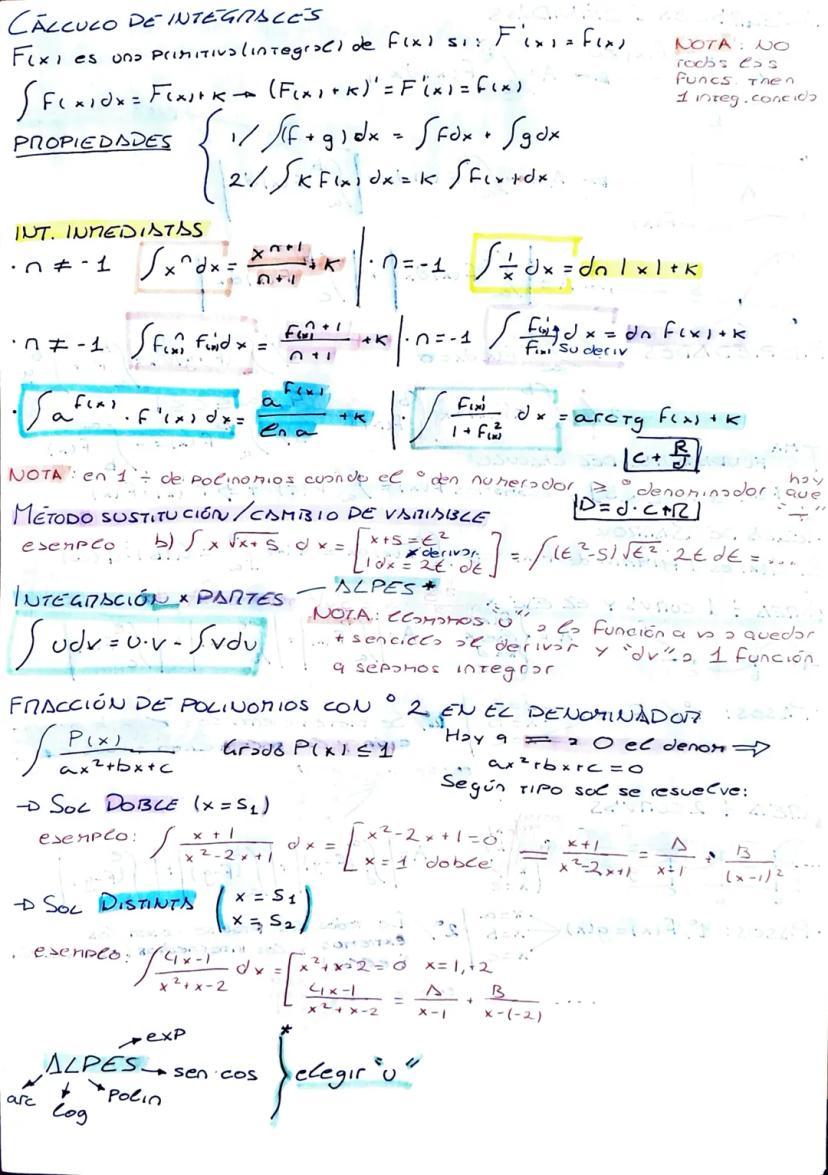 CÁLCULO DE INTEGRALES
F(x) es una primitiva (integral) de f(x) si: F'(x) = f(x)
NOTA: NO todas las funcs. tnen 1 integ. concida
∫ f(x) dx = F(x) + K → (F(x) + K)' = F'(x) = f(x)
PROPIEDADES
1/ ∫(f + g) dx = ∫ f dx + ∫ g dx
2/ ∫ K f(x) dx = K ∫ f(x) dx
INT. INMEDIATAS
· n ≠ -1 ∫ xⁿ dx = xⁿ⁺¹/n+1 + K | · n = -1 ∫ 1/x dx = ln |x| + K
· n ≠ -1 ∫ f(x)ⁿ f(x)' dx = f(x)ⁿ⁺¹/n+1 + K | · n = -1 ∫ f(x)'/f(x) dx = ln f(x) + K
su deriv
· ∫ a^f(x) · f'(x) dx = a^f(x)/ln a + K | · ∫ f(x)'/1 + f(x)² dx = arctg f(x) + K
C + R/d
NOTA: en 1 ÷ de polinomios cuando el º den numerador ≥ º denominador: hay que "÷"
D = d · C + R
MÉTODO SUSTITUCIÓN/CAMBIO DE VARIABLE
esemplo: b) ∫ x √x+5 dx = [x+5 = t²
* derivar
1dx = 2t · dt] = ∫ (t²-5) √t² · 2t dt = ...
INTEGRACIÓN x PARTES — ALPES *
∫ u dv = u · v - ∫ v du
NOTA: llamamos "u" a la función q va a quedar
+ sencilla al derivar y "dv" a 1 función
q sepamos integrar
FRACCIÓN DE POLINOMIOS CON º 2 EN EL DENOMINADOR
∫ P(x)/ax²+bx+c Grado P(x) ≤ 1
Hay q = a 0 el denom ⇒
ax²+bx+c = 0
Según tipo sol se resuelve:
→ SOL DOBLE (x = S₁)
esemplo: ∫ x+1/x²-2x+1 dx = [x²-2x+1 = 0
x = 1 doble = x+1/x²-2x+1 = A/x-1 + B/(x-1)² ...
→ SOL DISTINTA (x = S₁
x = S₂)
esemplo: ∫ 4x-1/x²+x-2 dx = [x²+x-2 = 0 x = 1, -2
4x-1/x²+x-2 = A/x-1 + B/x-(-2) ....
exp
ALPES → sen cos } * elegir "u"
arc log Polin